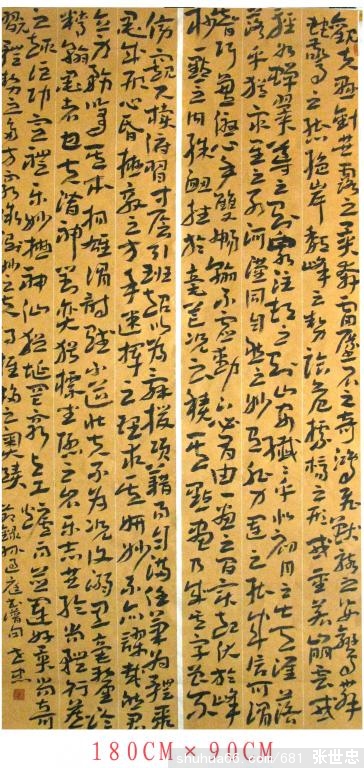 觀夫懸針垂露之異奔雷墜石之奇鴻飛獸駭之姿鸞舞
蛇驚之態絕岸頹峰之勢臨危據槁之形或重若崩雲或
輕如蟬翼導之則泉注頓之則山安纖纖乎似初月之出天涯落
落乎猶眾星之列河漢同自然之妙有非力運之能成信可謂
智巧兼優心手雙暢翰不虛動下必有由一畫之間變起伏於峰
杪一點之內殊衄挫於毫芒況云積其點畫乃成其字曾不
傍窺尺牘俯習寸陰引班超以為辭援項籍而自滿任筆為體聚
墨成形心昏擬效之方手迷揮運之理求其妍妙不亦謬哉然君子
立身務修其本楊雄謂詩賦小道壯夫不為況復溺思毫釐淪
精翰墨者也夫潛神對奕猶標坐隱之名樂志垂綸尚體行藏
之趣詎若功定禮樂妙擬神仙猶埏埴罔窮與工爐而並運好異尚奇之士
翫體勢之多方窮微測妙之夫得推移之奧賾
節錄孫過庭書譜句 世忠
180CM×90CM
shuhua66.com/681 张世忠